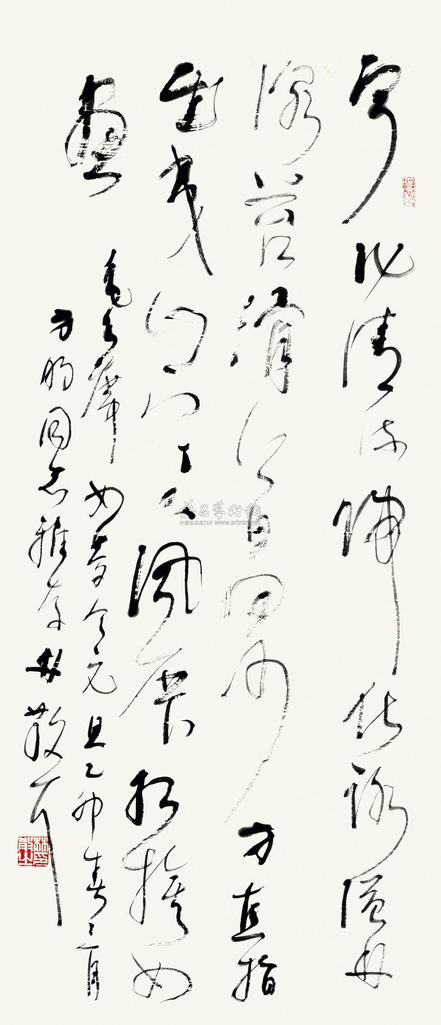 寧化清流歸化路隘林
深苔滑今日向何方直指
武夷山下山下風展紅旗如
畫
毛主席如夢令元旦乙卯春三月
方明同志雅存林散耳